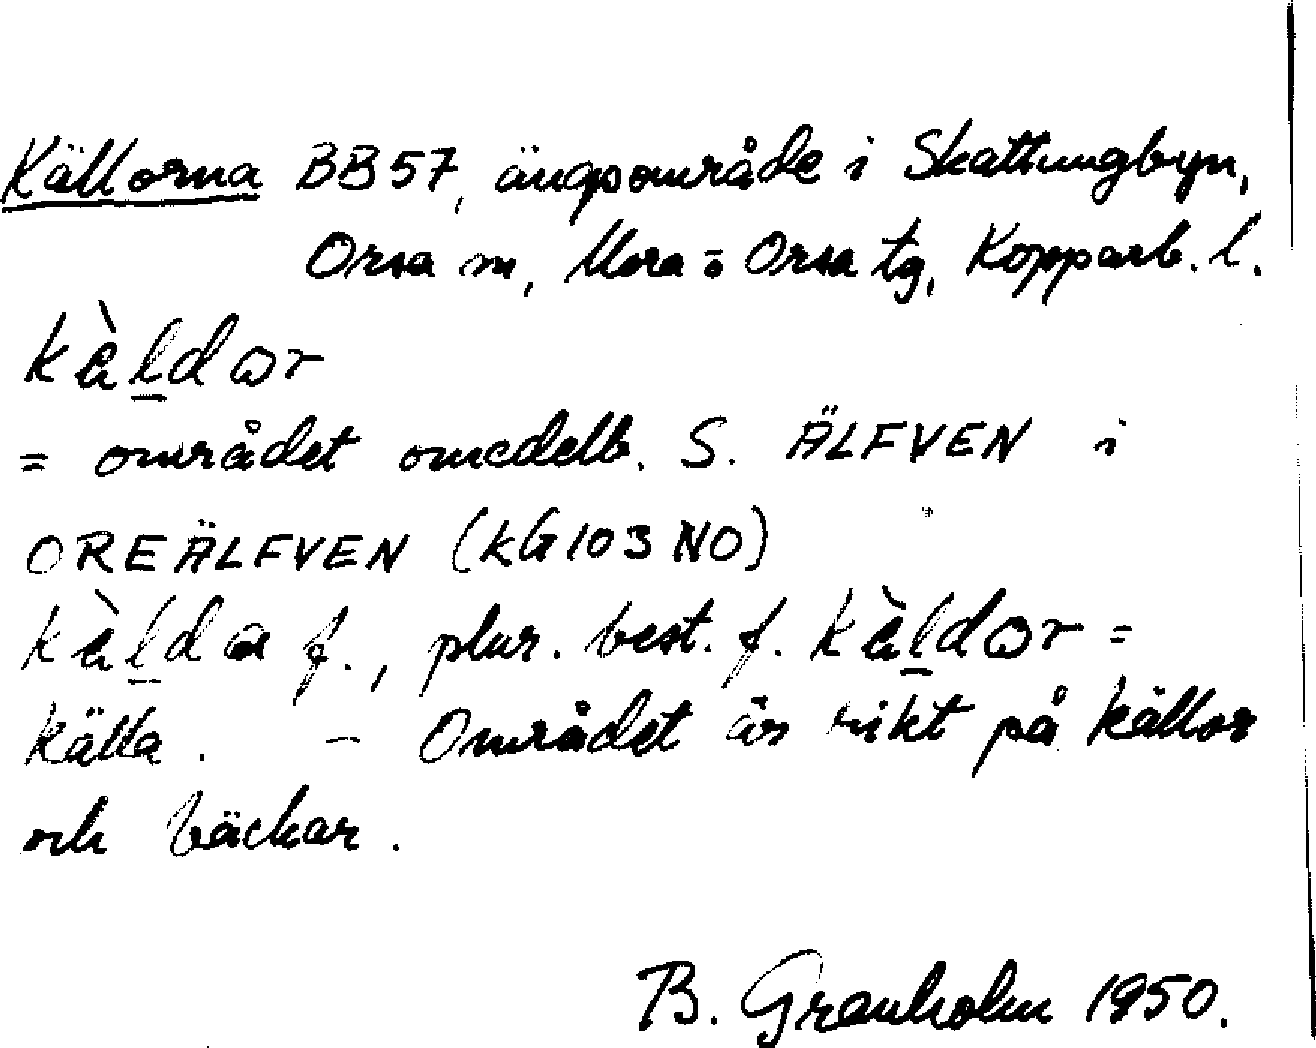 Källorna BB57, ängsområde i Skattungbyn,
Orsa sn, Mora o Orsa tg, Kopparb. l.
kàl̲dɷr
= området omedelb. S. ÄLFVEN i
OREÄLFVEN (KG103 NO)
kàl̲da f., plur. best. f. kàl̲dɷr =
källa. – Området är rikt på källor
och bäckar.
B. Granholm 1950.